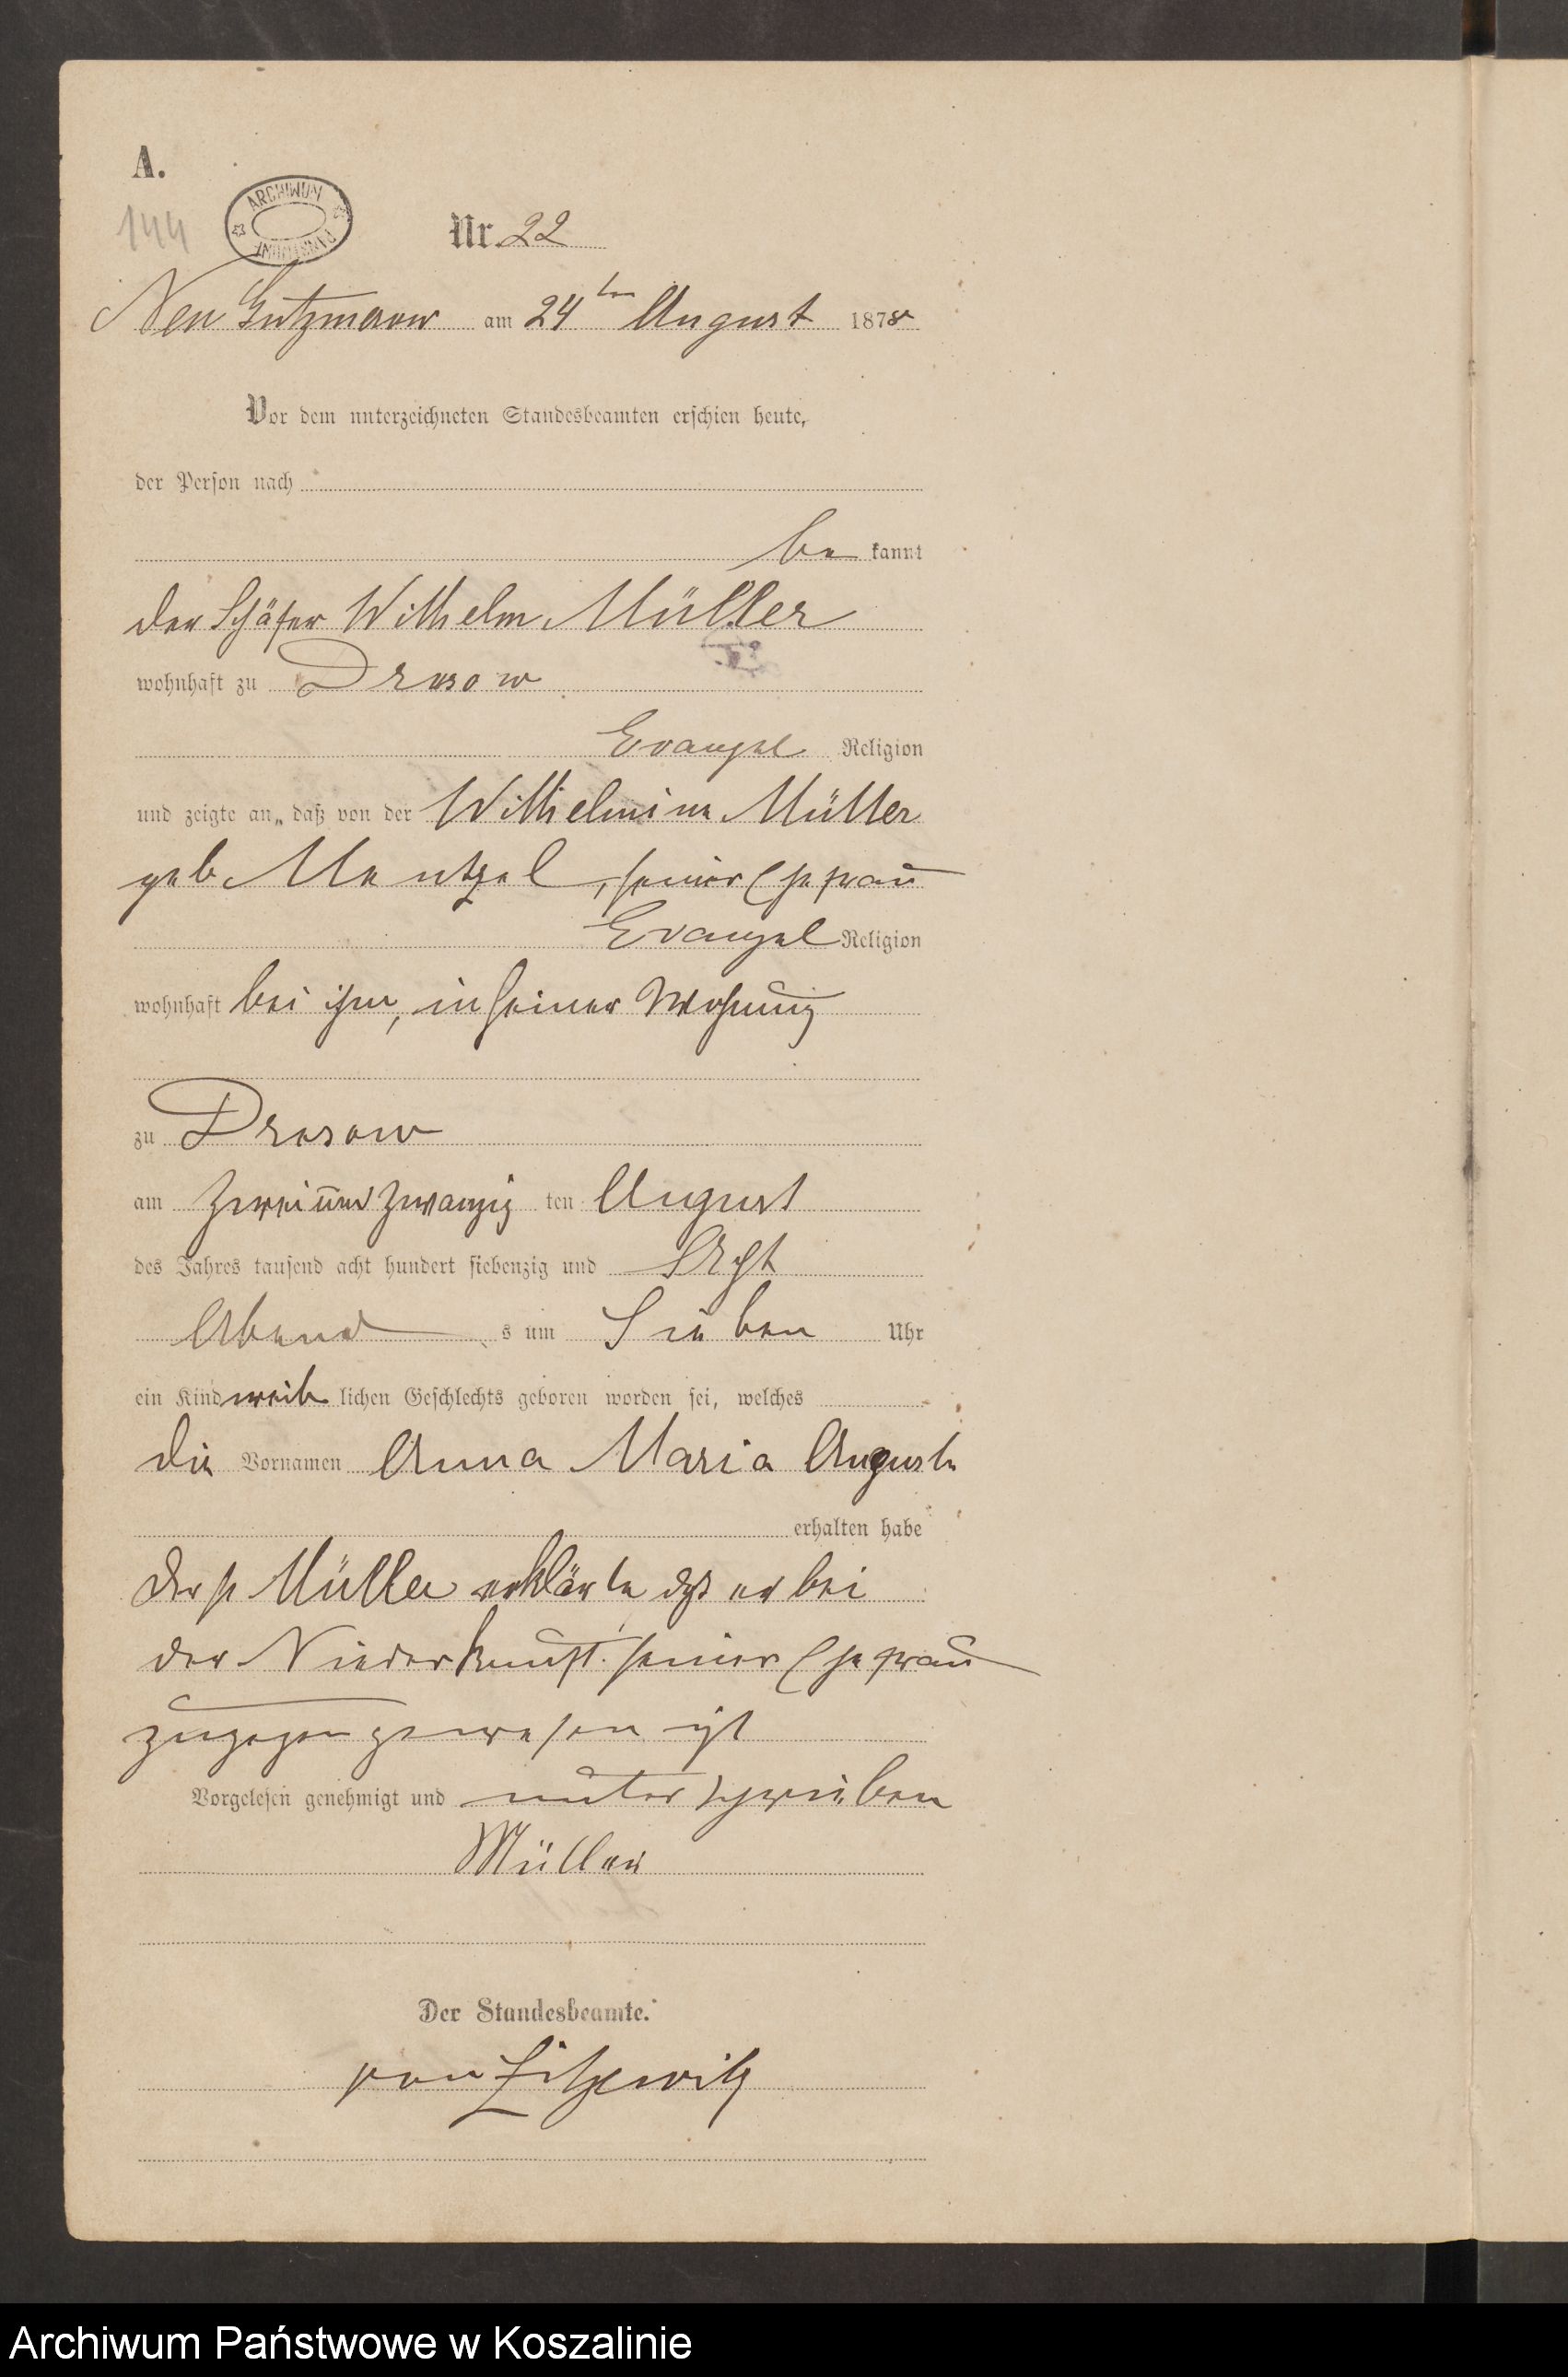 A.
144
ARCHIWUM
Nr. 22
Neu Gutzmerow am 24ten August 1878
Vor dem unterzeichneten Standesbeamten erschien heute,
der Person nach
be kannt
der Schäfer Wilhelm Müller
wohnhaft zu Dresow
Evangel Religion
und zeigte an, daß von der Wilhelmine Müller
geb Mentzel, seiner Ehefrau
Evangel Religion
wohnhaft bei ihm, in seiner Wohnung
zu Dresow
am zwei und zwanzig ten August
des Jahres tausend acht hundert siebenzig und Acht
Abend s um Sieben Uhr
ein Kind weib lichen Geschlechts geboren worden sei, welches
die Vornamen Anna Maria Auguste
erhalten habe
Der p Müller erklärte daß er bei
der Niederkunft seiner Ehefrau
zugegen gewesen ist
Vorgelesen genehmigt und unterschrieben
Müller
Der Standesbeamte.
von Zitzewitz
Archiwum Państwowe w Koszalinie